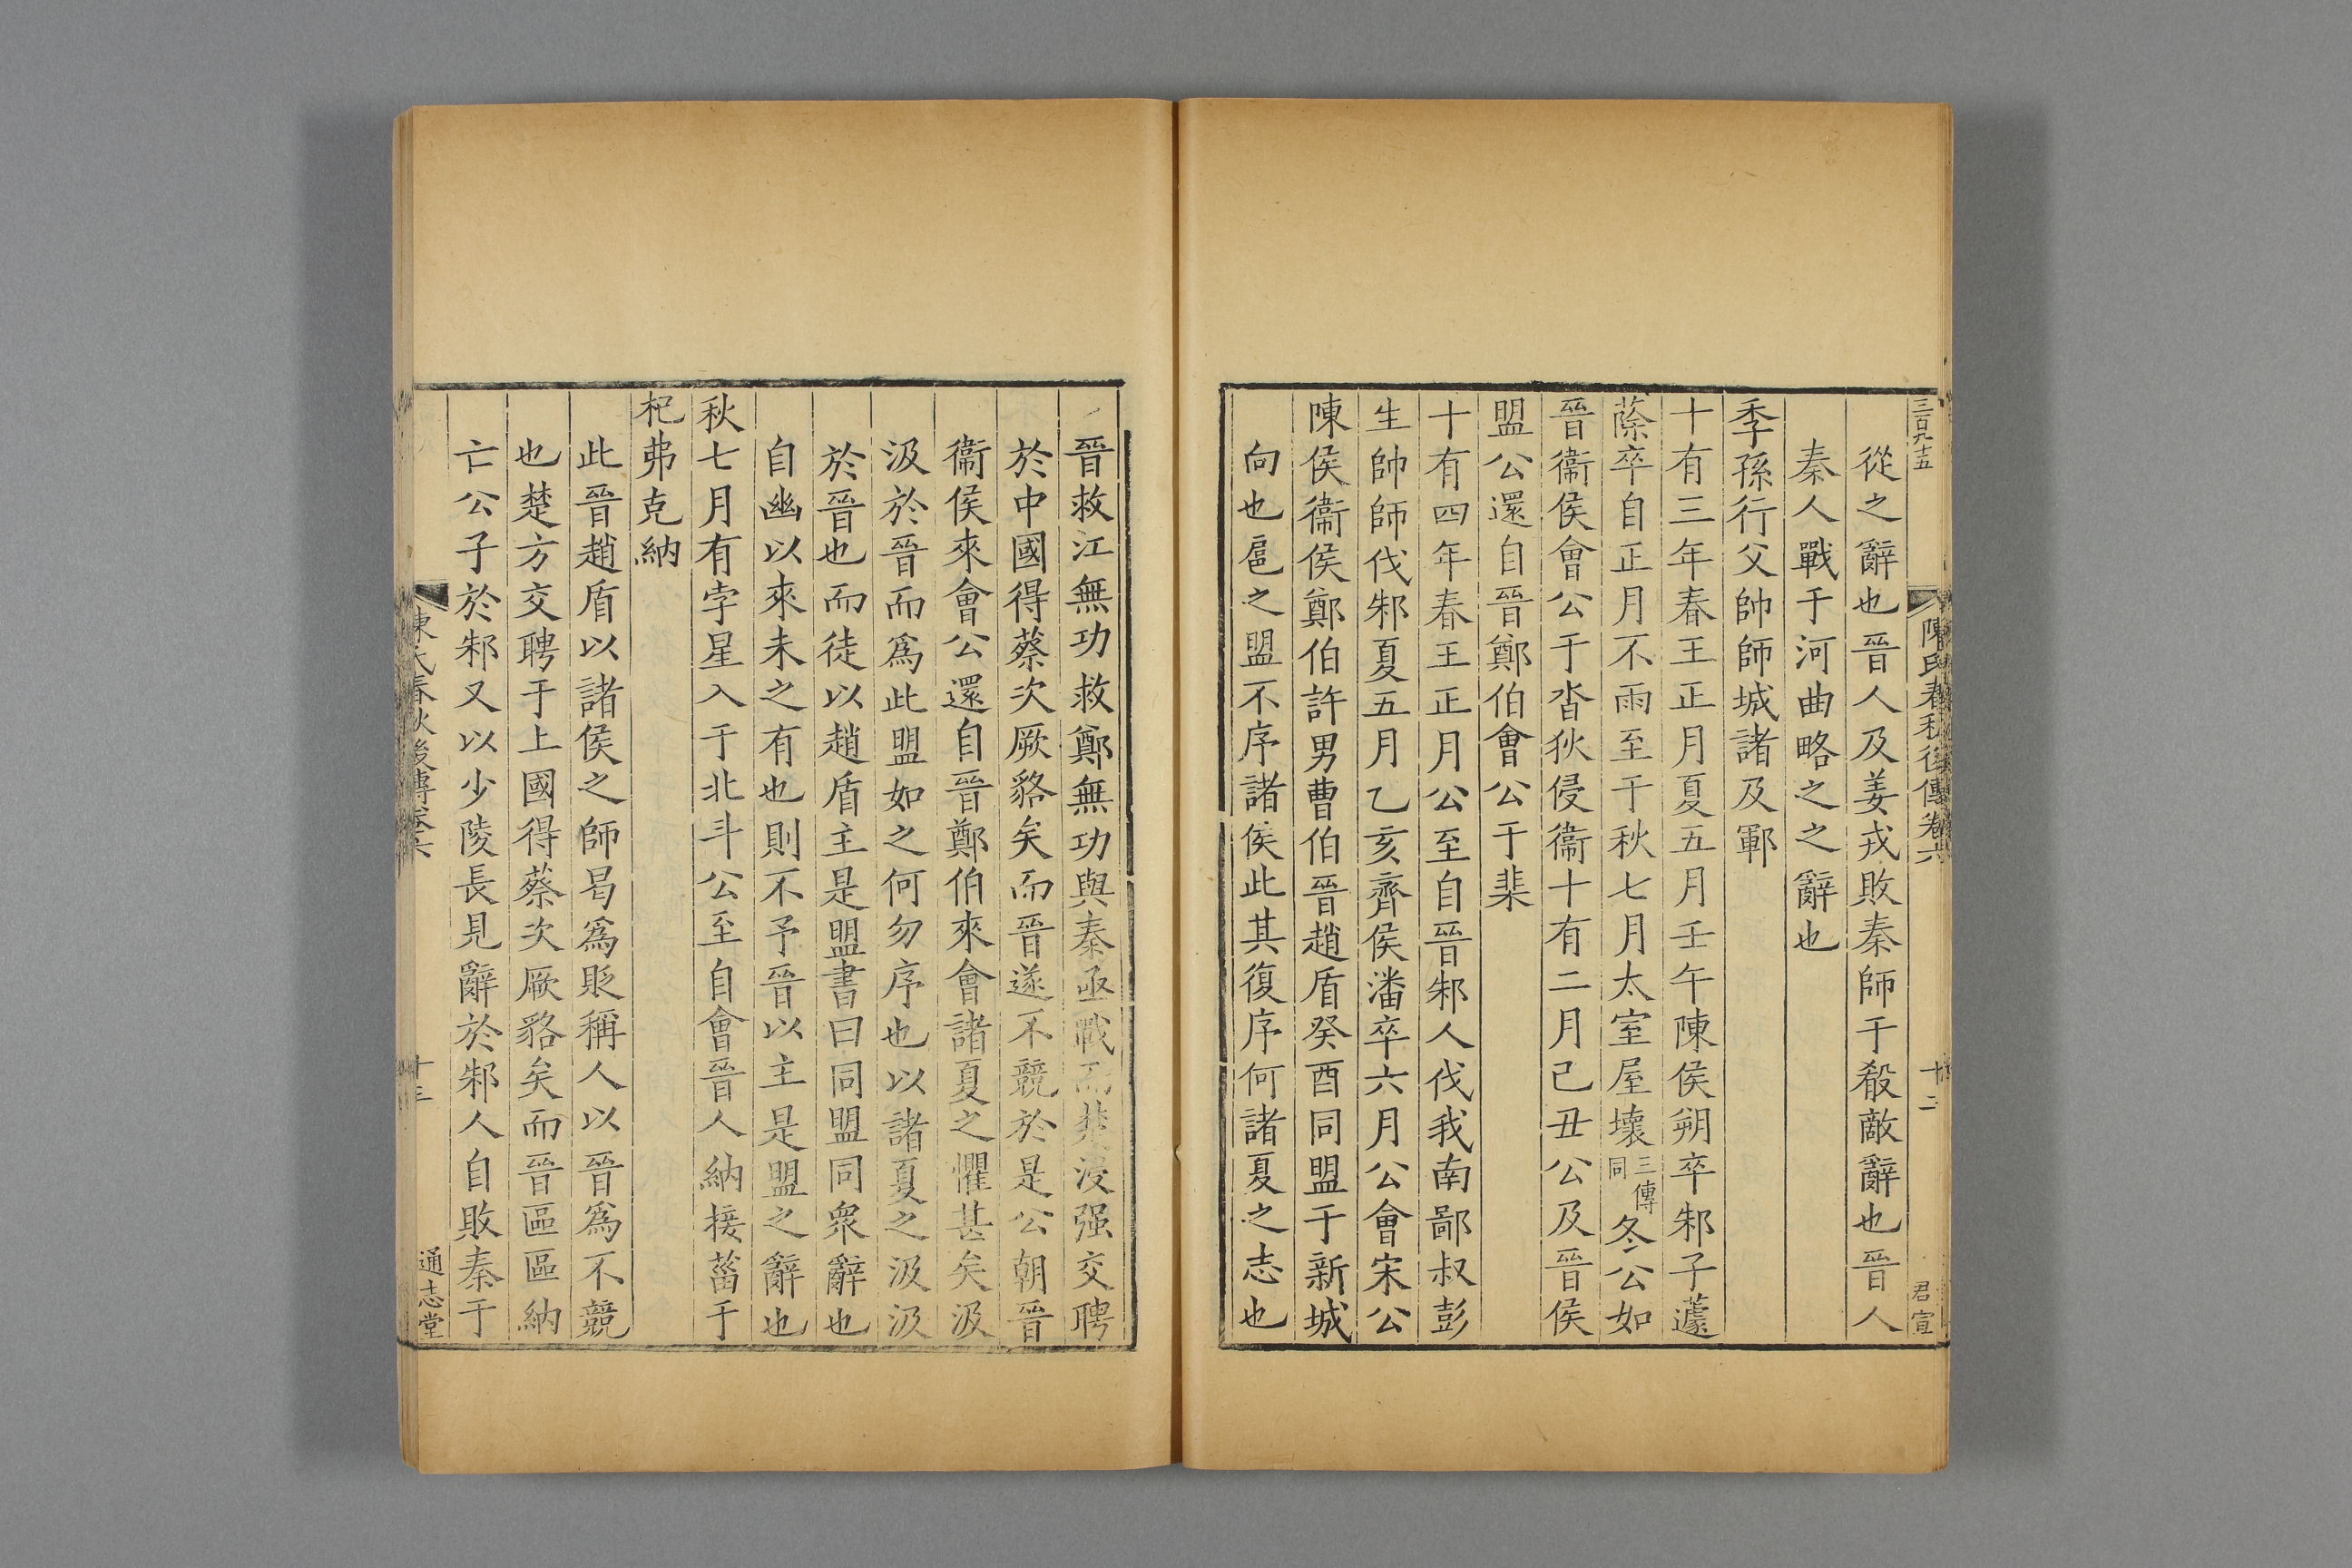 三百九十五
陳氏春秋後傳卷六
十二
君宣
從之辭也晉人及姜戎敗秦師于殽敵辭也晉人
秦人戰于河曲略之之辭也
季孫行父帥師城諸及鄆
十有三年春王正月夏五月壬午陳侯朔卒邾子蘧
蒢卒自正月不雨至于秋七月太室屋壞三傳同冬公如
晉衞侯會公于沓狄侵衞十有二月己丑公及晉侯
盟公還自晉鄭伯會公于棐
十有四年春王正月公至自晉邾人伐我南鄙叔彭
生帥師伐邾夏五月乙亥齊侯潘卒六月公會宋公
陳侯衞侯鄭伯許男曹伯晉趙盾癸酉同盟于新城
向也扈之盟不序諸侯此其復序何諸夏之志也
晉救江無功救鄭無功與秦亟戰而楚浸强交聘
於中國得蔡次厥貉矣而晉遂不競於是公朝晉
衞侯來會公還自晉鄭伯來會諸夏之懼甚矣汲
汲於晉而爲此盟如之何勿序也以諸夏之汲汲
於晉也而徒以趙盾主是盟書曰同盟同衆辭也
自幽以來未之有也則不予晉以主是盟之辭也
秋七月有孛星入于北斗公至自會晉人納接菑于
杞弗克納
此晉趙盾以諸侯之師曷爲貶稱人以晉爲不競
也楚方交聘于上國得蔡次厥貉矣而晉區區納
亡公子於邾又以少陵長見辭於邾人自敗秦于
陳氏春秋後傳卷六
十三
通志堂